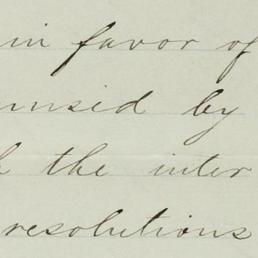 in favor of
by
the inter
resolutions